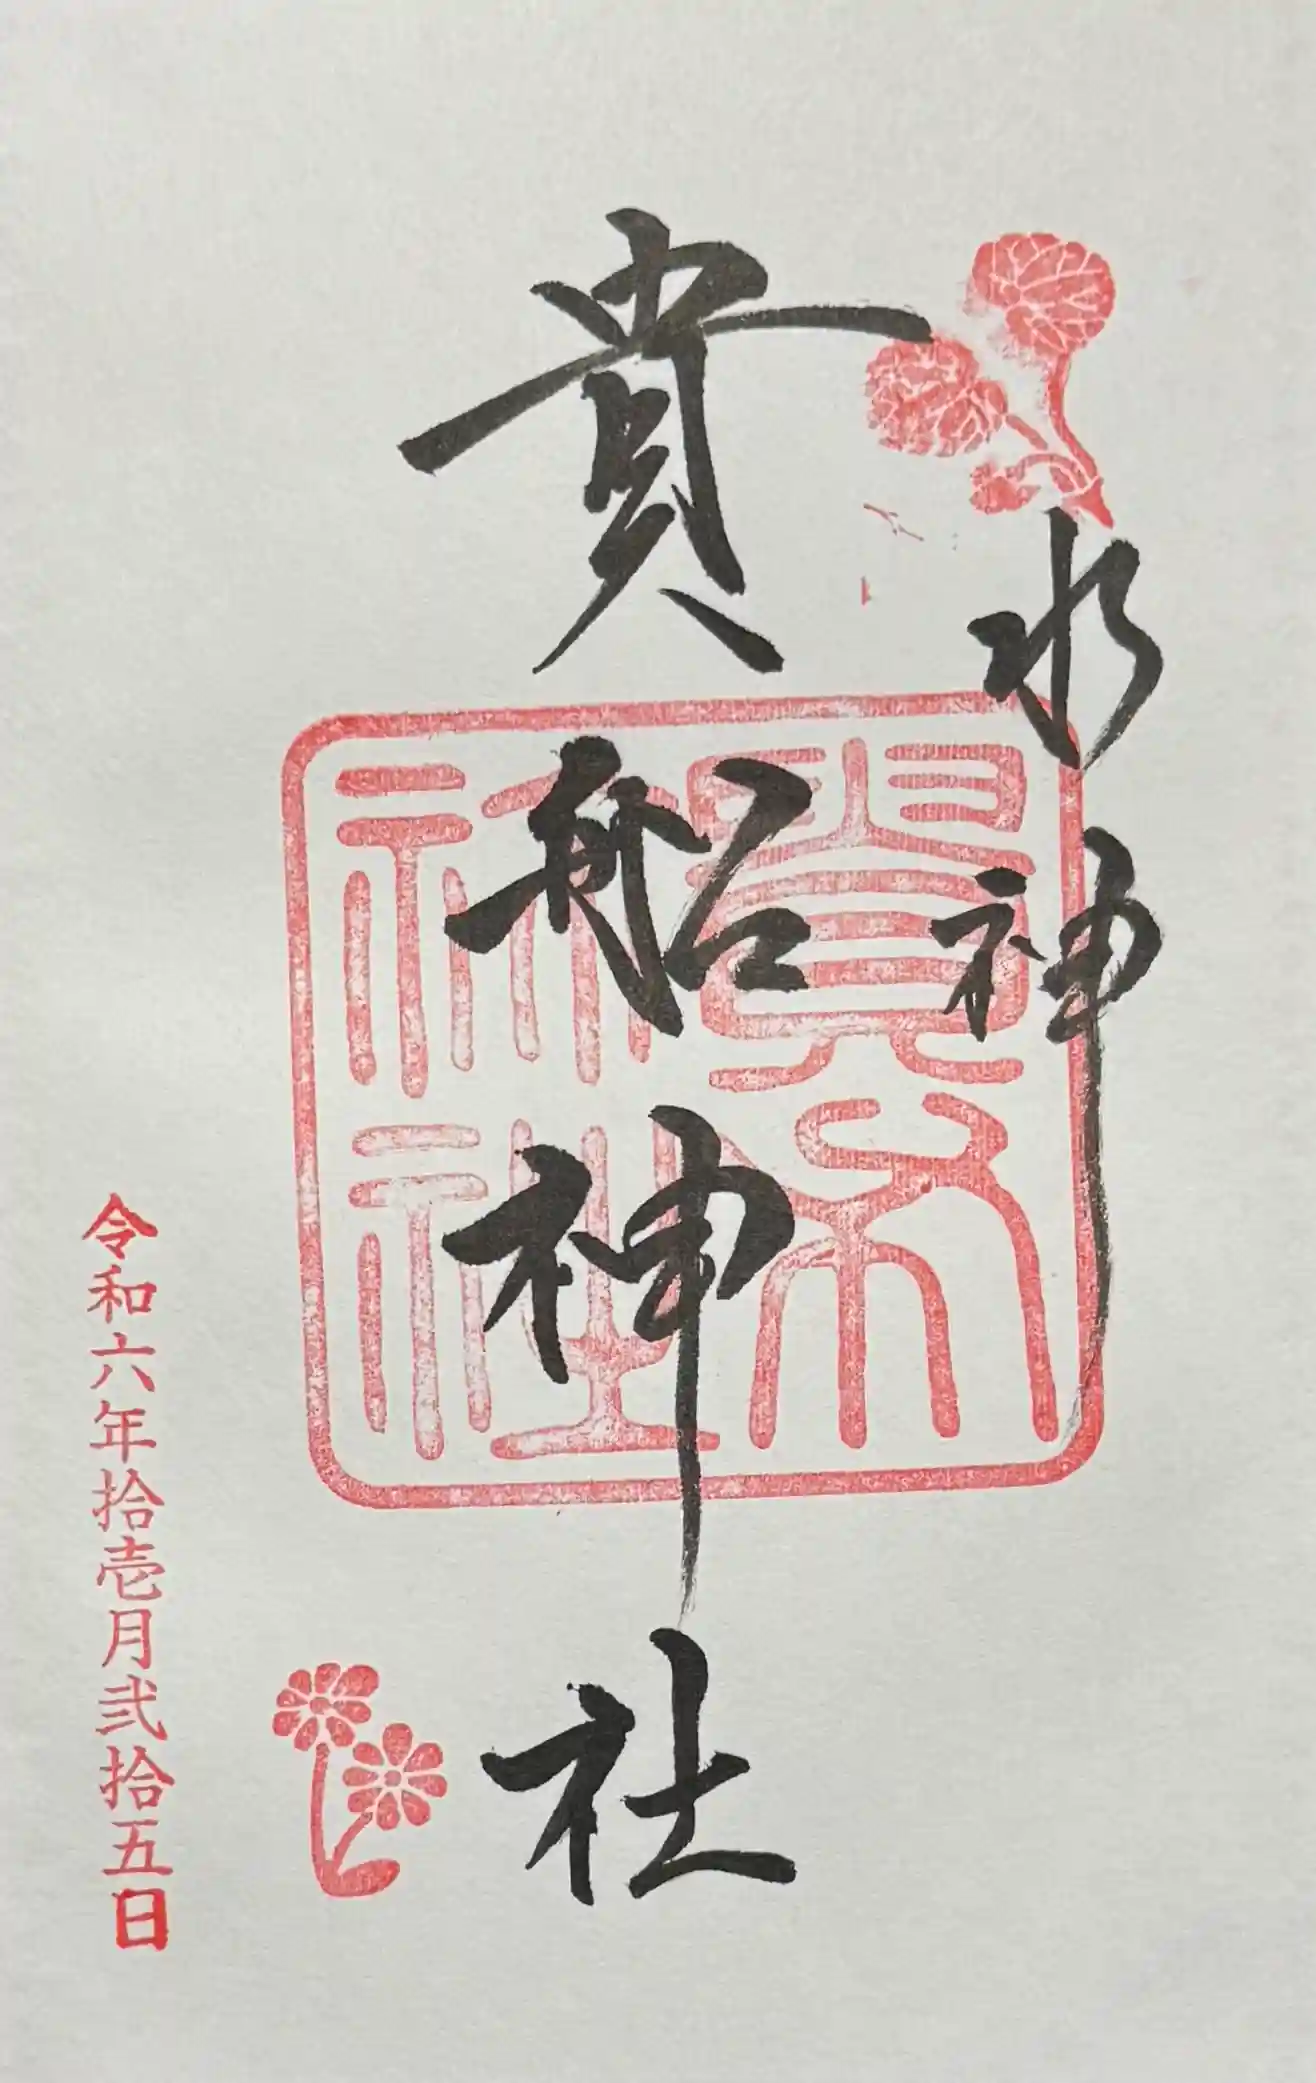 水神
貴船神社
令和六年拾壱月弐拾五日